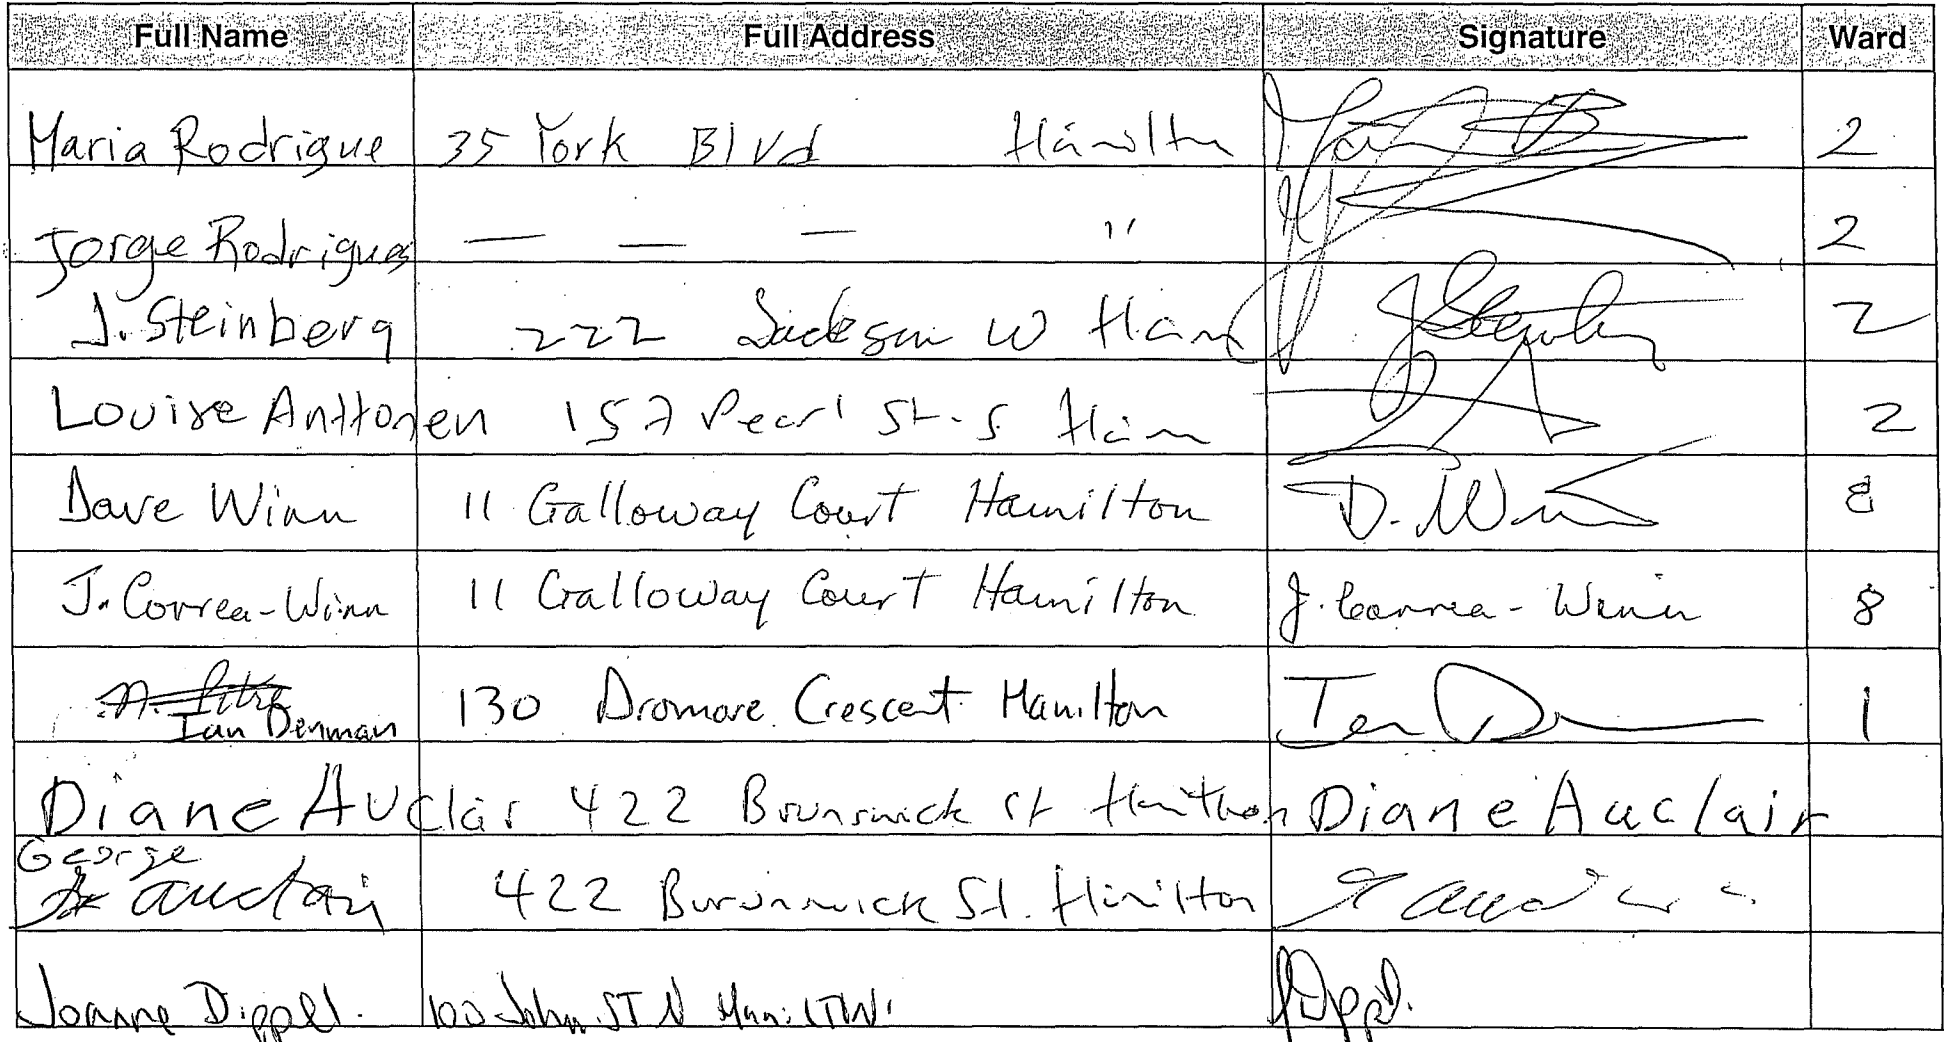 Full Name Full Address Signature Ward
Maria Rodrigue 35 York Blvd Hamilton 2
Jorge Rodrigues — — — " 2
J. Steinberg 222 Jackson W Ham 2
Louise Anttonen 157 Pearl St. S. Ham 2
Dave Winn 11 Galloway Court Hamilton D. Winn 8
J. Correa-Winn 11 Galloway Court Hamilton J. Correa-Winn 8
Ian Denman 130 Dromore Crescent Hamilton Ian D 1
Diane Auclair 422 Brunswick St Hamilton Diane Auclair
George
Auclair 422 Burunnwick St. Hamilton
Joanne Dippel. 100 John ST N Hamilton JDippel.